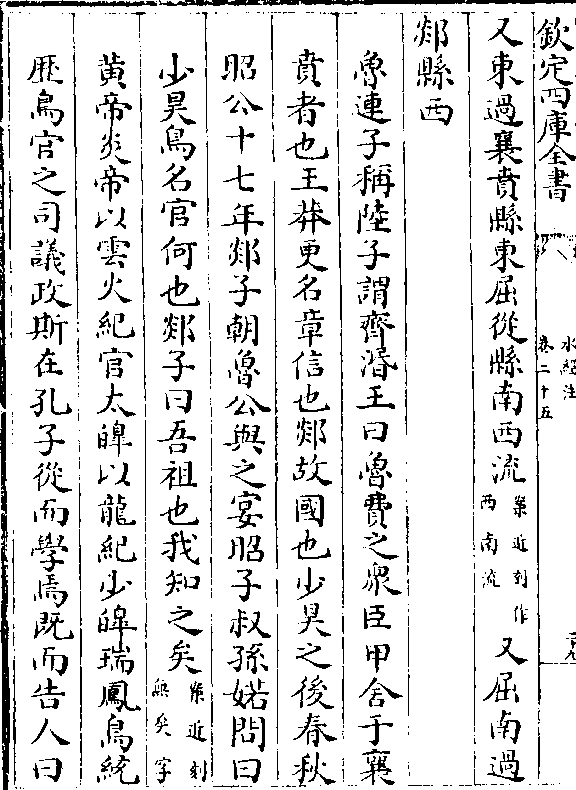 欽定四庫全書
水經注
卷二十五
又東過襄賁縣東屈從縣南西流案近刻作西南流又屈南過
郯縣西
魯連子稱陸子謂齊湣王曰魯費之衆臣甲舍于襄
賁者也王莽更名章信也郯故國也少昊之後春秋
昭公十七年郯子朝魯公與之宴昭子叔孫婼問曰
少昊鳥名官何也郯子曰吾祖也我知之矣案近刻無矣字
黄帝炎帝以雲火紀官太皥以龍紀少皥瑞鳳鳥統
歴鳥官之司議政斯在孔子從而學焉既而告人曰